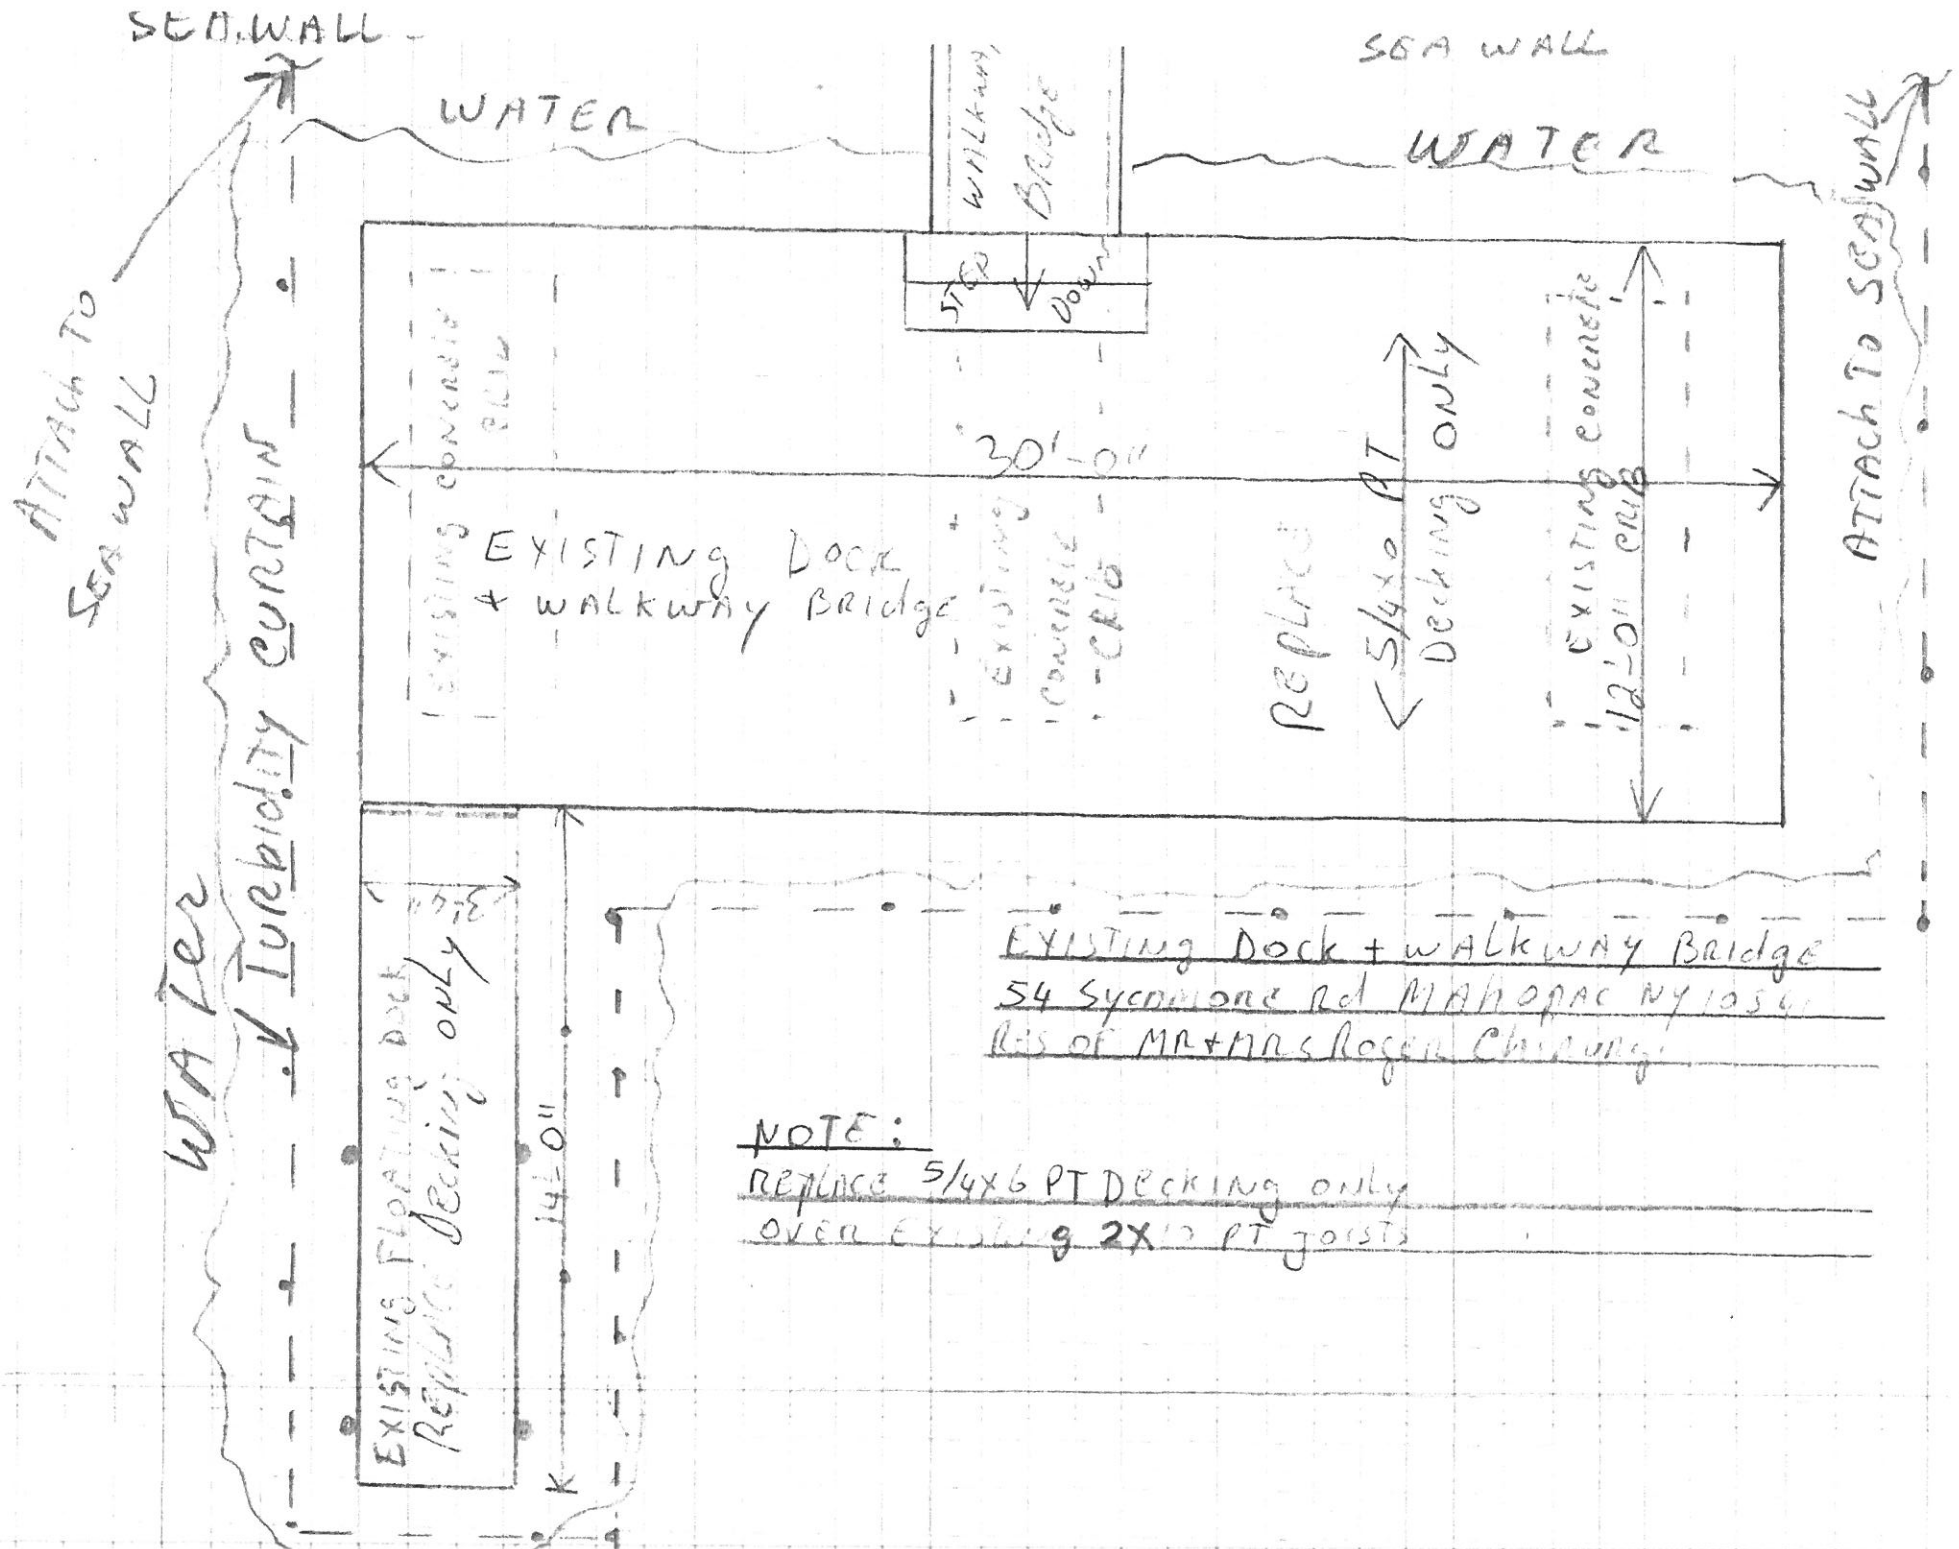 SEA WALL
SEA WALL
WATER
WATER
WALKWAY
BRIdge
STEP
DOWN
ATTACH TO
SEA WALL
ATTACH TO SEA WALL
TURbidiTY CURTAIN
WATer
EXISTING CONCRETE
30'-0"
EXISTING DOCK
+ WALKWAY BRIdge
EXISTING
CONCRETE
CRIB
REPLACE
5/4x6 PT
Decking ONLY
EXISTING CONCRETE
CRIB
12'-0"
EXISTING FLOATING DOCK
REPLACE Decking ONLY
14'-0"
EXISTING Dock + WALKWAY BRIdge
54 Sycamore Rd MAHOPAC NY
RES OF MR+MRS ROGER
NOTE:
REPLACE 5/4x6 PT Decking only
OVER EXISTING 2X10 PT JOISTS